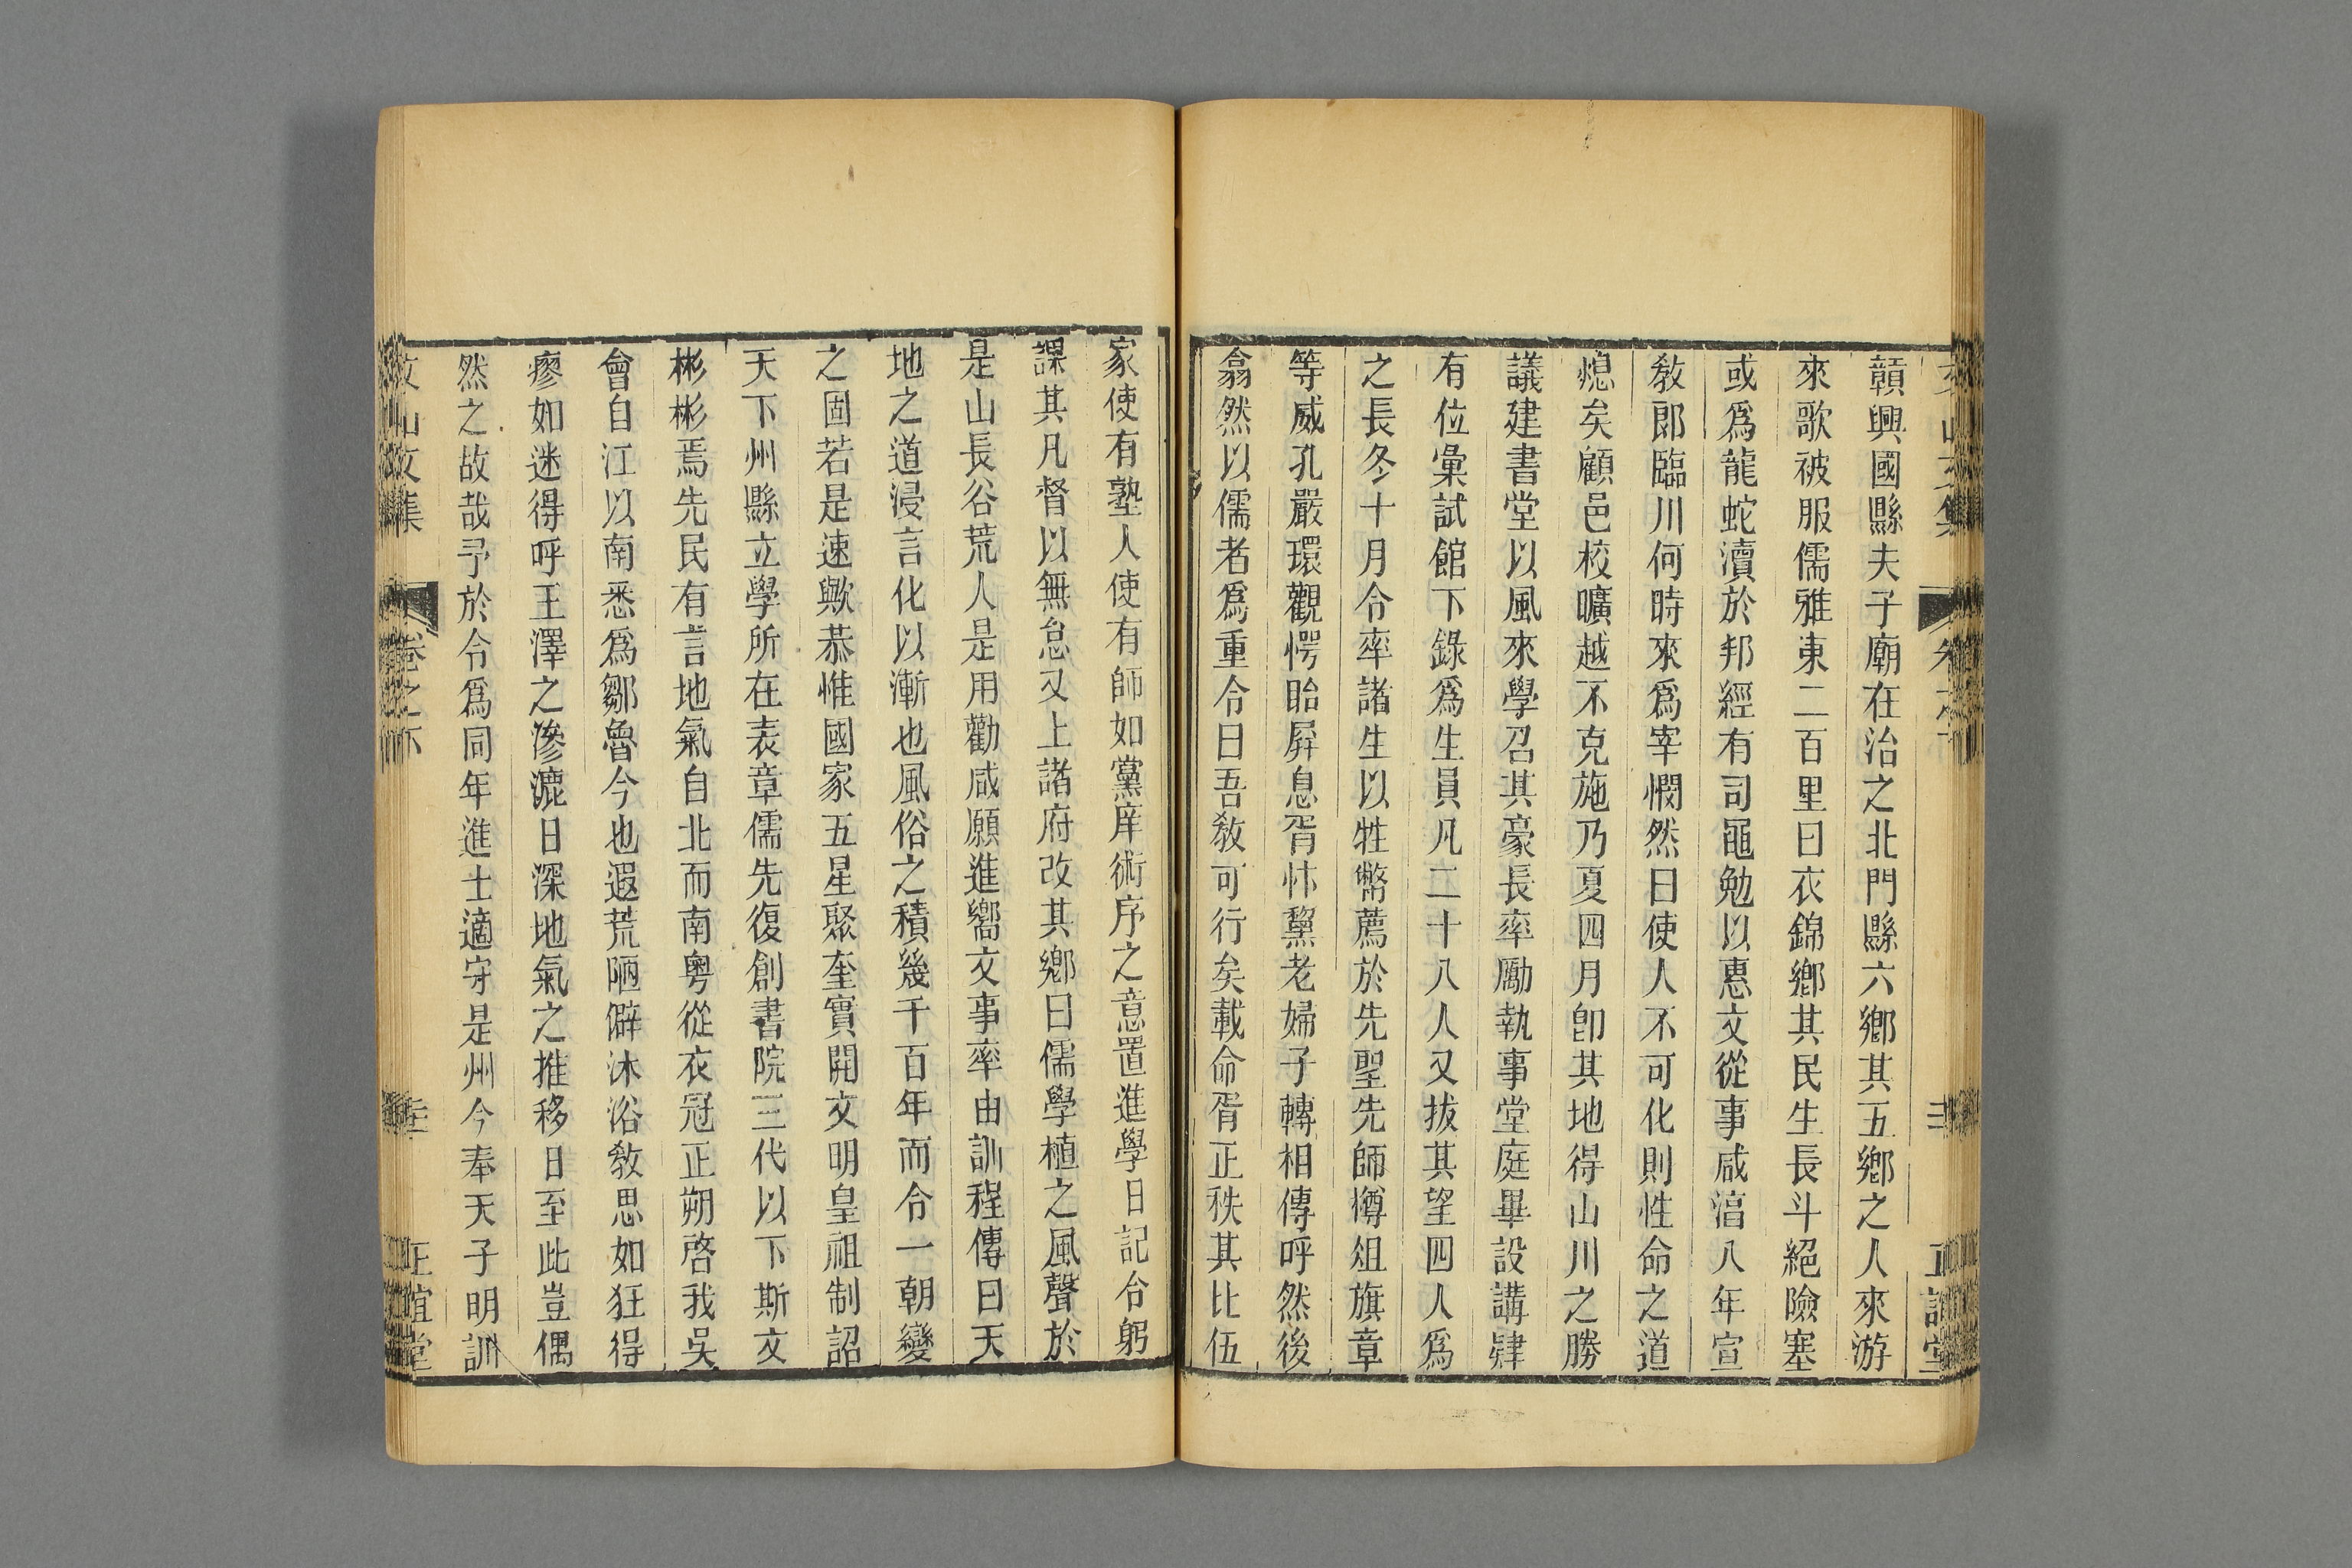 贛興國縣夫子廟在治之北門縣六鄉其五鄉之人來游
來歌被服儒雅東二百里曰衣錦鄉其民生長斗絕險塞
或爲龍蛇瀆於邦經有司黽勉以惠文從事咸淳八年宣
敎郎臨川何時來爲宰憫然曰使人不可化則性命之道
熄矣顧邑校曠越不克施乃夏四月卽其地得山川之勝
議建書堂以風來學召其豪長率勵執事堂庭畢設講肄
有位彙試館下錄爲生員凡二十八人又拔其望四人爲
之長冬十月令率諸生以牲幣薦於先聖先師樽俎旗章
等威孔嚴環觀愕眙屏息胥怵黧老婦子轉相傳呼然後
翕然以儒者爲重令曰吾敎可行矣載命胥正秩其比伍
家使有塾人使有師如黨庠術序之意置進學日記台躬
課其凡督以無怠又上諸府改其鄉曰儒學植之風聲於
是山長谷荒人是用勸咸願進嚮文事率由訓程傳曰天
地之道浸言化以漸也風俗之積幾千百年而令一朝變
之固若是速歟恭惟國家五星聚奎實開文明皇祖制詔
天下州縣立學所在表章儒先復創書院三代以下斯文
彬彬焉先民有言地氣自北而南粵從衣冠正朔啓我吳
會自江以南悉爲鄒魯今也遐荒陋僻沐浴敎思如狂得
瘳如迷得呼王澤之滲漉日深地氣之推移日至此豈偶
然之故哉予於令爲同年進士適守是州今奉天子明訓
文山文集
卷之下
正誼堂